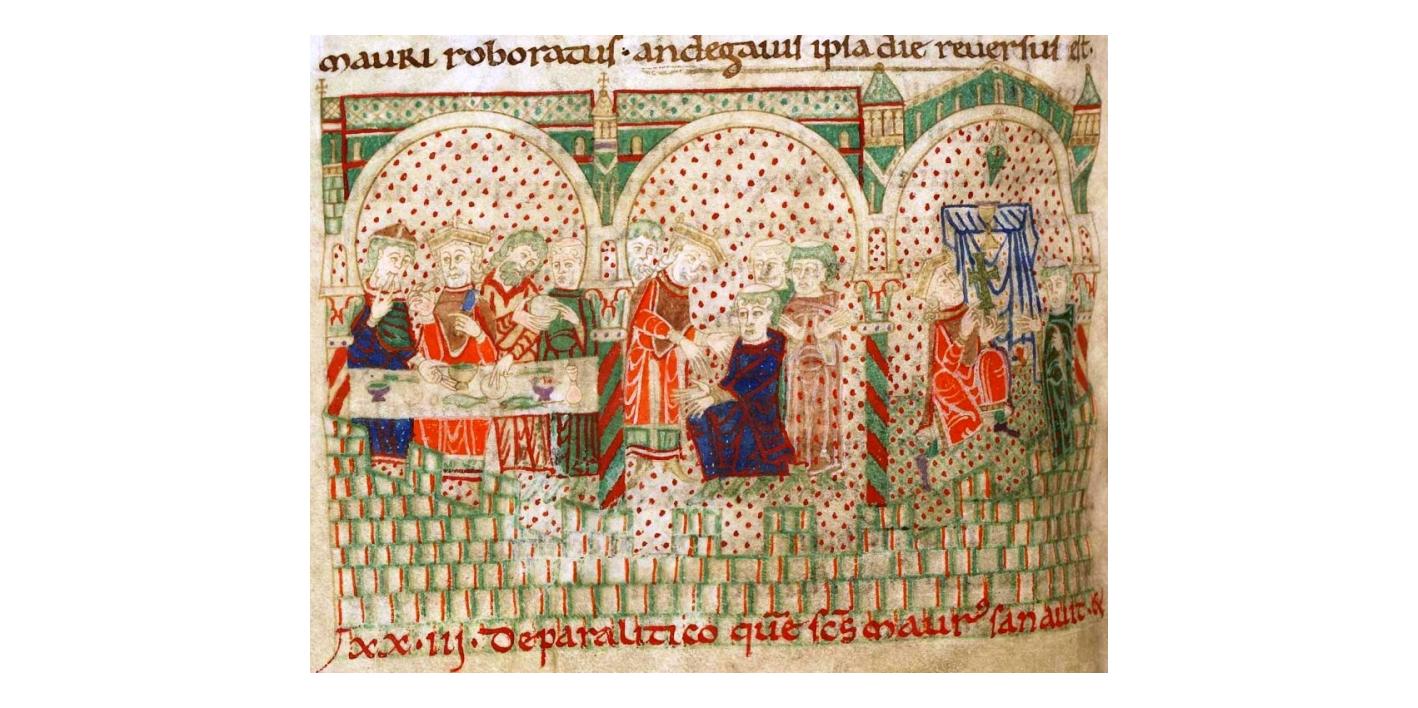 mauri roboratus · andegavis ipsa die reversus est.
xx·iij· De paralitico quē scs̄ maurꝰ sanavit · &